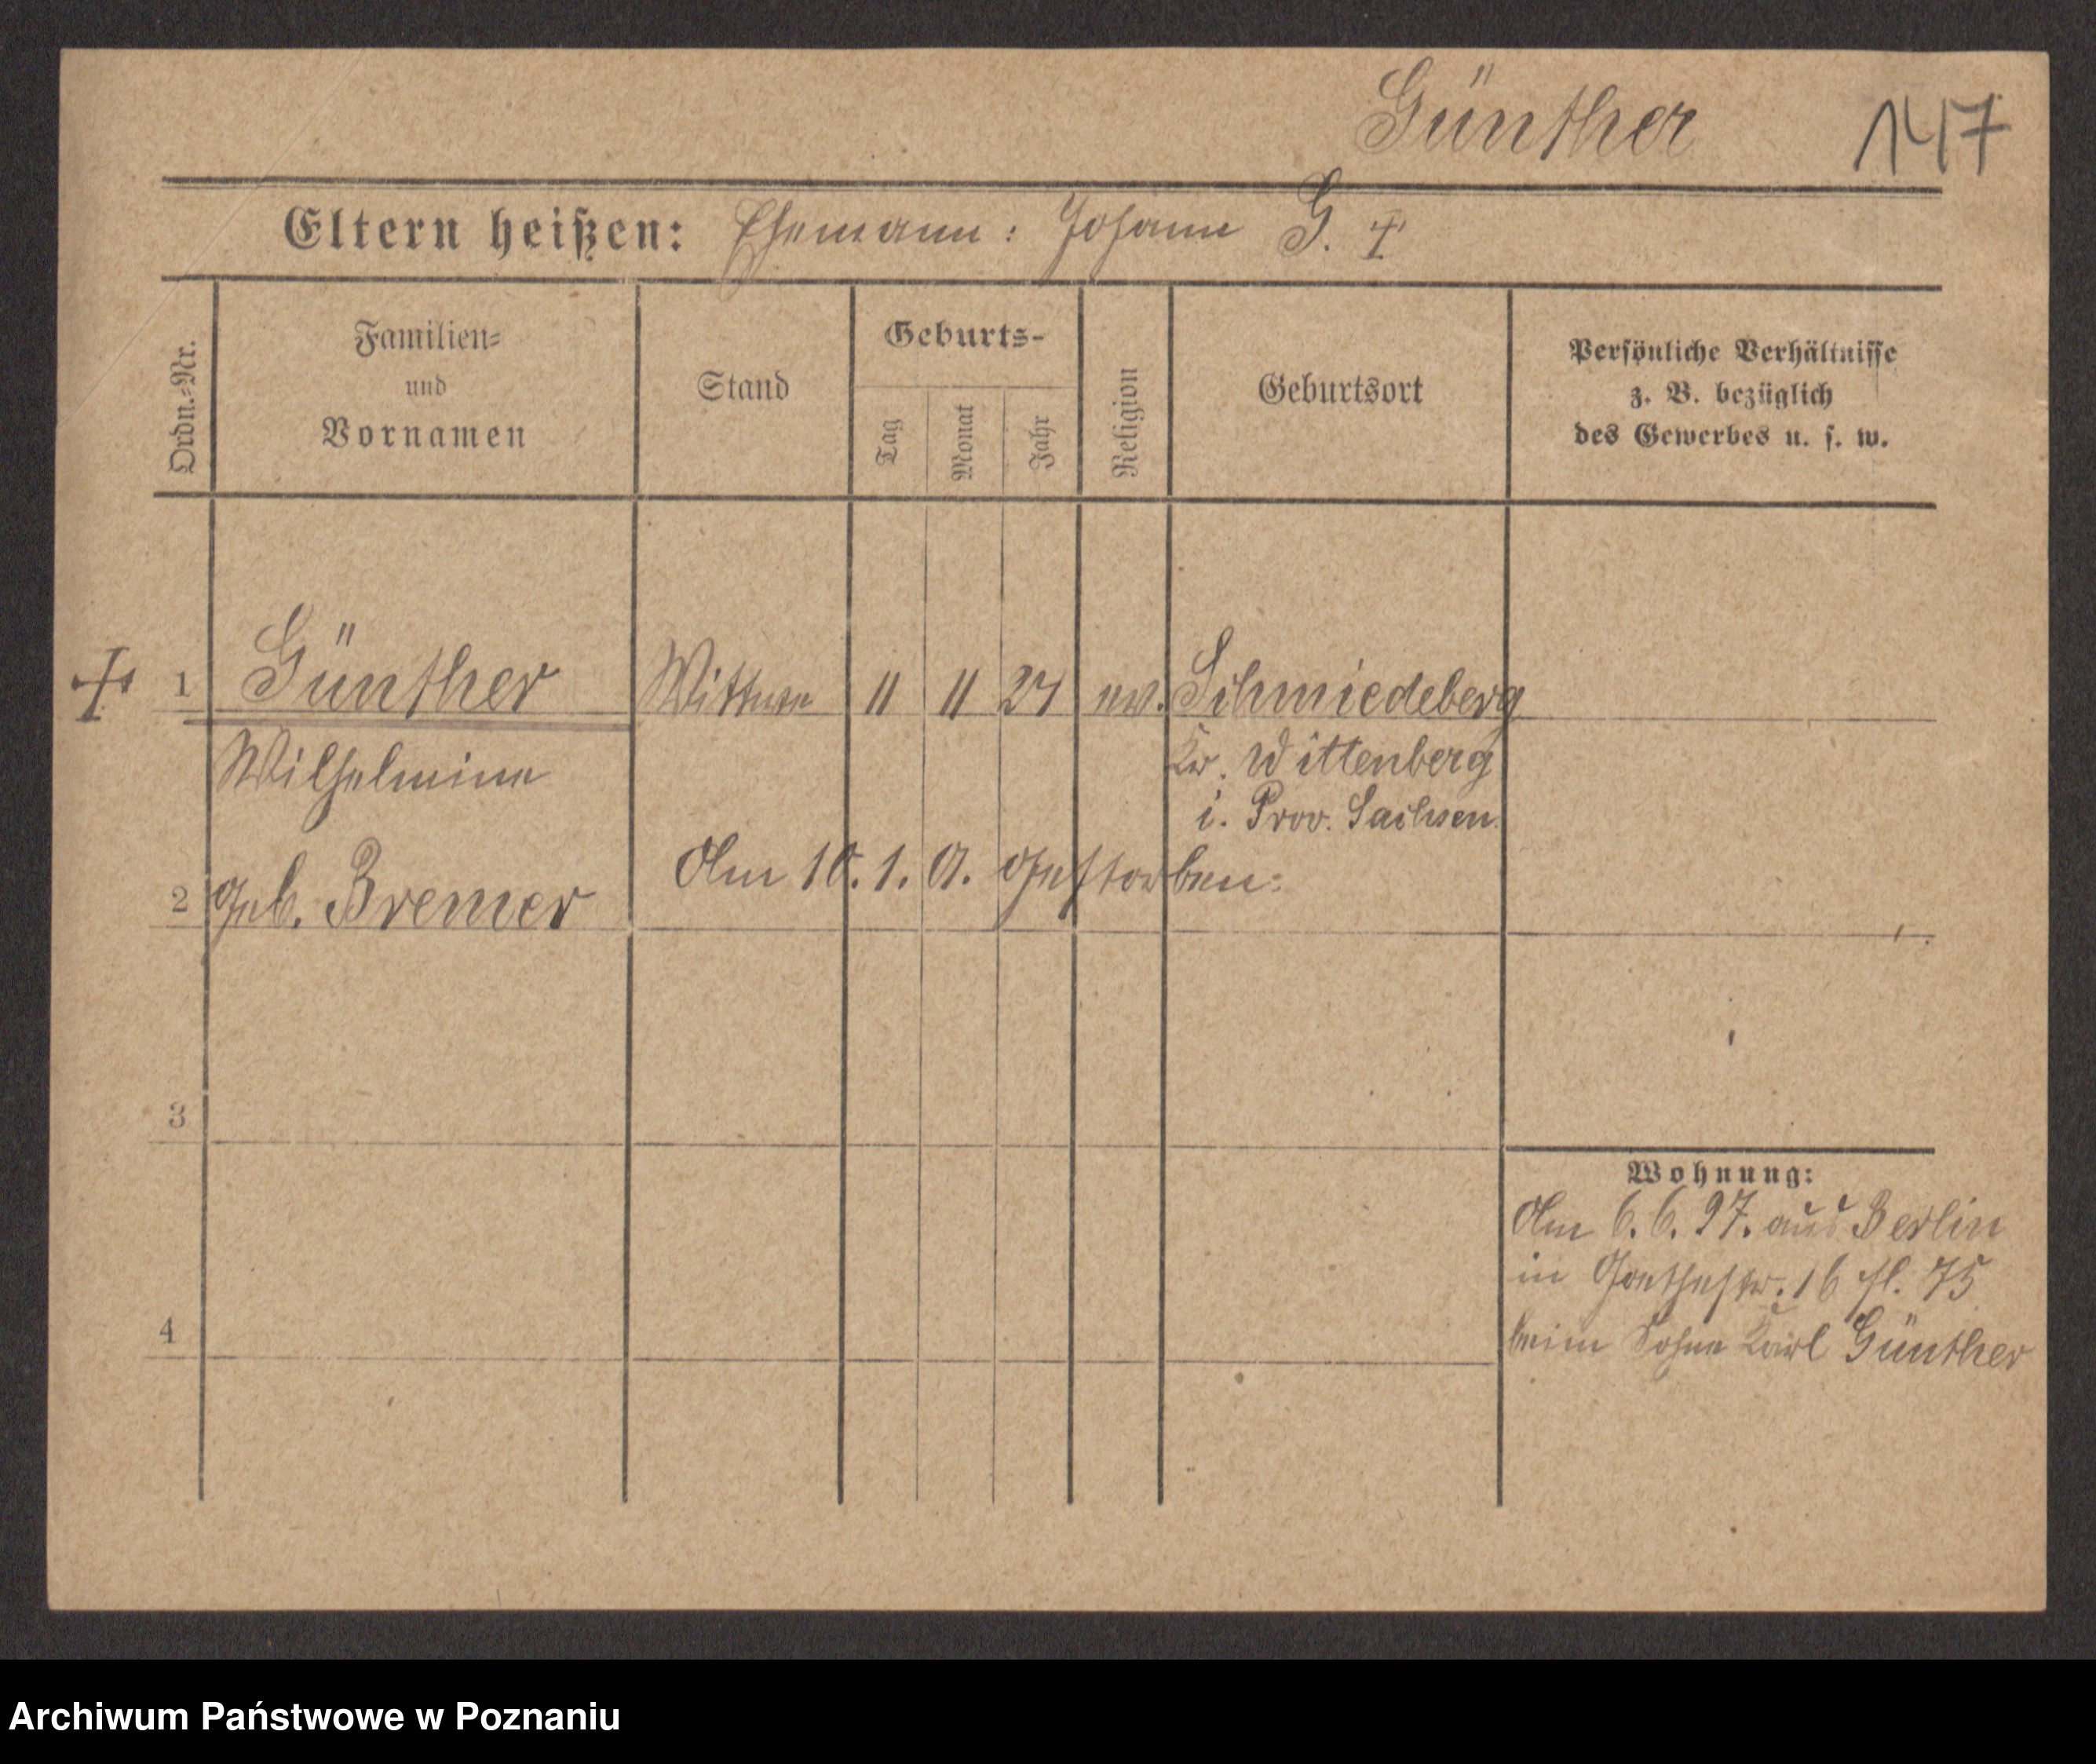 Günther 147
Eltern heißen: Ehemann: Johann G. †
Ordn.-Nr.
Familien-
und
Vornamen
Stand
Geburts-
Tag
Monat
Jahr
Religion
Geburtsort
Persönliche Verhältnisse
z. B. bezüglich
des Gewerbes u. s. w.
† 1 Günther Wittwe 11 11 27 ev. Schmiedeberg
Wilhelmine Kr. Wittenberg
i. Prov. Sachsen
Am 10. 1. 01. gestorben.
2 geb. Bremer
3
Wohnung:
Am 6. 6. 97. aus Berlin
in Goethestr. 16 fl. 75
4 beim Sohne Karl Günther
Archiwum Państwowe w Poznaniu